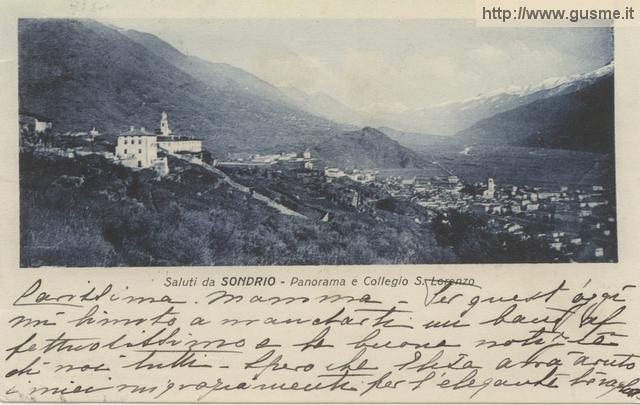 http://www.gusme.it
Saluti da SONDRIO - Panorama e Collegio S. Lorenzo
Carissima Mamma - Per quest'oggi
mi limito a mandarti un bacio af
fettuosissimo e le buone notizie
di noi tutti - Spero che Elisa avrà avuto
i miei ringraziamenti per l'elegante